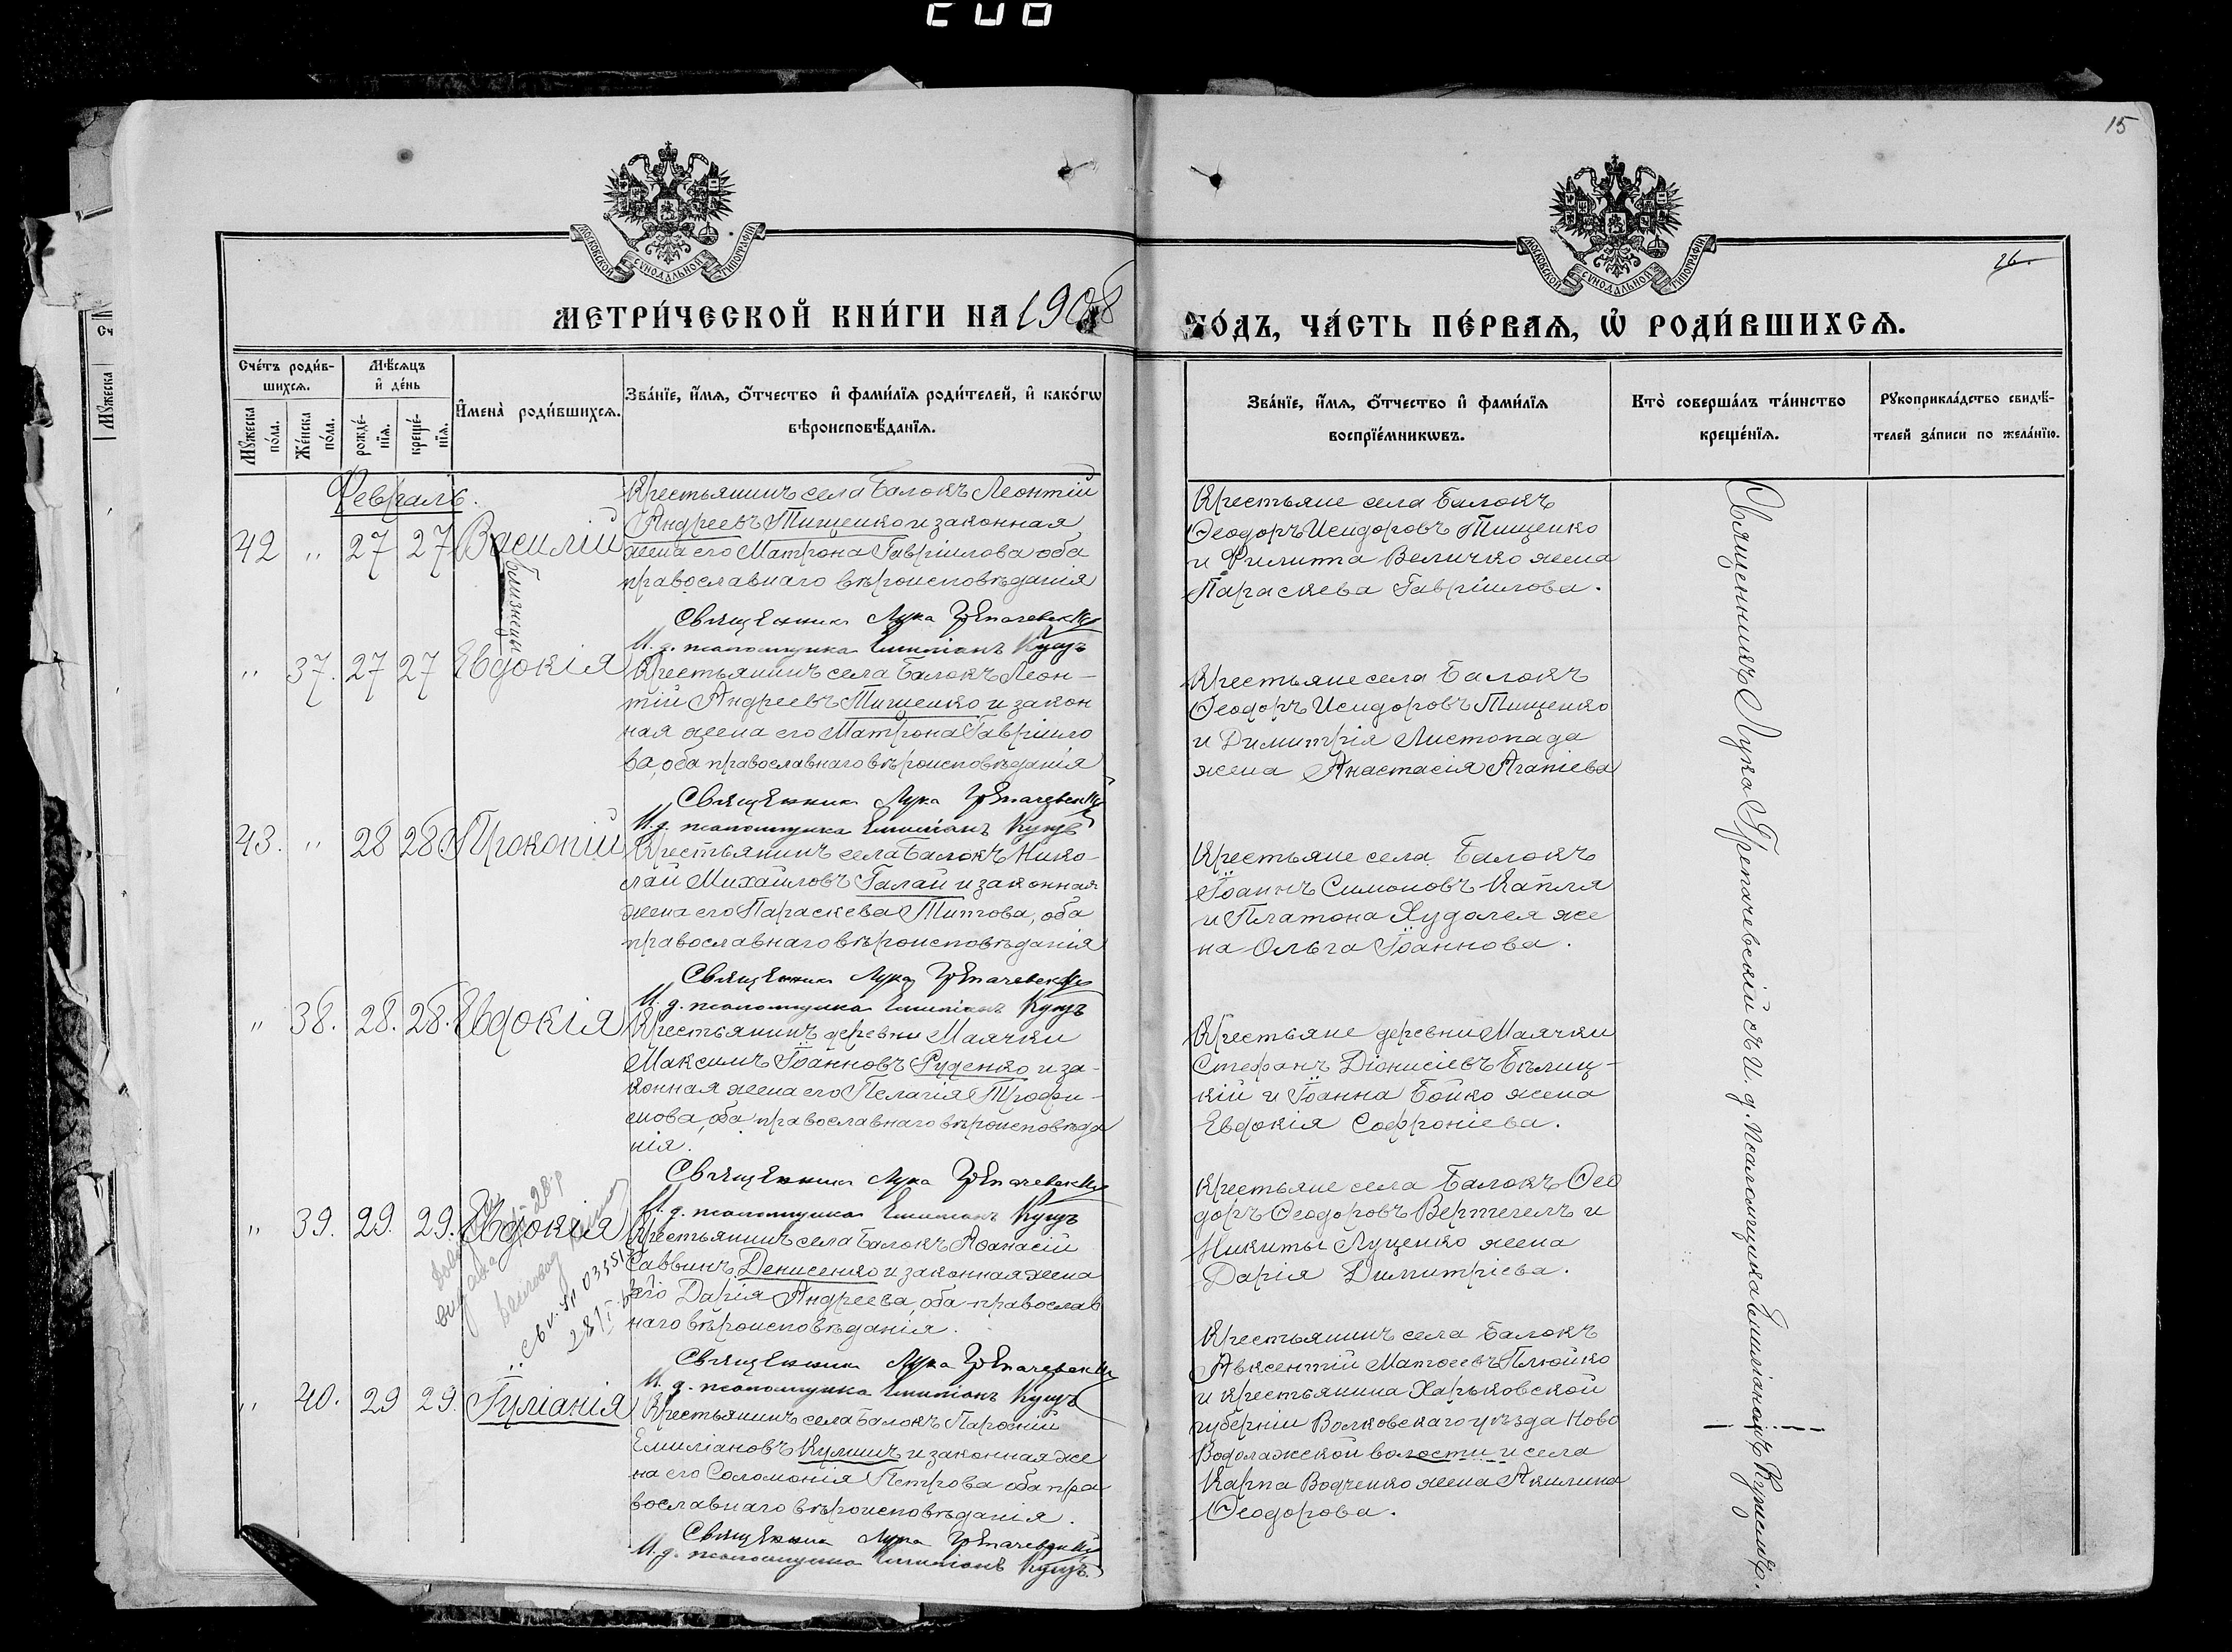 208
15
26.
МОСКОВСКОЙ СѴНОДАЛЬНОЙ ТИПОГРАФІИ
МОСКОВСКОЙ СѴНОДАЛЬНОЙ ТИПОГРАФІИ
МЕТРИ́ЧЕСКОЙ КНИ́ГИ НА 1908
ГО́ДЪ, ЧА́СТЬ ПЕ́РВАѦ, Ѽ РОДИ́ВШИХСѦ.
Сче́тъ роди́в-
шихсѧ.
Мꙋжеска по́ла.
Же́нска по́ла.
Мѣ́сѧцъ
и҆ де́нь
рожде́-
нїѧ.
креще́-
нїѧ.
И҆мена̀ роди́вшихсѧ.
Зва́нїе, и҆́мѧ, ѻ҆́тчество и҆ фами́лїѧ роди́телей, и҆ како́гѡ
вѣроисповѣ́данїѧ.
Зва́нїе, и҆́мѧ, ѻ҆́тчество и҆ фами́лїѧ
воспрїе́мникѡвъ.
Кто̀ соверша́лъ та́инство
креще́нїѧ.
Рꙋкоприкла́дство свидѣ́-
телей за́писи по жела́нїю.
Февраль.
42 " 27 27 Василій
близнецы
Крестьянинъ села Балокъ Леонтій
Андреевъ Тищенко и законная
жена его Матрона Гавріилова оба
православнаго вѣроисповѣданія
Священникъ Лука Грепачевскій
И. д. псаломщика Емиліанъ Кущъ
Крестьяне села Балокъ
Ѳеодоръ Исидоровъ Тищенко
и Филиппа Величко жена
Параскева Гавріилова.
" 37. 27 27 Евдокія
Крестьянинъ села Балокъ Леон-
тій Андреевъ Тищенко и закон
ная жена его Матрона Гавріило
ва, оба православнаго вѣроисповѣданія
Священникъ Лука Грепачевскій
И. д. псаломщика Емиліанъ Кущъ
Крестьяне села Балокъ
Ѳеодоръ Исидоровъ Тищенко
и Димитрія Листопада
жена Анастасія Агапіева
43. " 28 28 Прокопій
Крестьянинъ села Балокъ Нико-
лай Михаиловъ Галай и законная
жена его Параскева Титова, оба
православнаго вѣроисповѣданія
Священникъ Лука Грепачевскій
И. д. псаломщика Емиліанъ Кущъ
Крестьяне села Балокъ
Іоаннъ Симоновъ Капля
и Платона Худолея же
на Ольга Іоаннова.
" 38. 28. 28. Евдокія
Крестьянинъ деревни Маячки
Максимъ Іоанновъ Руденко и за-
конная жена его Пелагія Трофи-
мова, оба православнаго вѣроисповѣда
нія.
Священникъ Лука Грепачевскій
И. д. псаломщика Емиліанъ Кущъ
Крестьяне деревни Маячки
Стефанъ Діонисіевъ Бѣлиц-
кій и Іоанна Бойко жена
Евдокія Софроніева.
" 39. 29. 29. Евдокія
Крестьянинъ села Балокъ Аѳанасій
Саввинъ Денисенко и законная жена
его Дарія Андреева, оба православ
наго вѣроисповѣданія.
Священникъ Лука Грепачевскій
И. д. псаломщика Емиліанъ Кущъ
Крестьяне села Балокъ Ѳео
доръ Ѳеодоровъ Вертегелъ и
Никиты Луценко жена
Дарія Димитріева.
" 40. 29 29. Іуліанія
Крестьянинъ села Балокъ Парѳеній
Емиліановъ Кулишъ и законная же
на его Соломонія Петрова оба пра
вославнаго вѣроисповѣданія.
Священникъ Лука Грепачевскій
И. д. псаломщика Емиліанъ Кущъ.
Крестьянинъ села Балокъ
Авксентій Матѳеевъ Плюйко
и крестьянина Харьковской
губерніи Волковскаго уѣзда Ново
Водолажской волости и села
Карпа Водченко жена Акилина
Ѳеодорова.
Священникъ Лука Грепачевскій съ И. д. псаломщика Емиліаномъ Кущемъ.